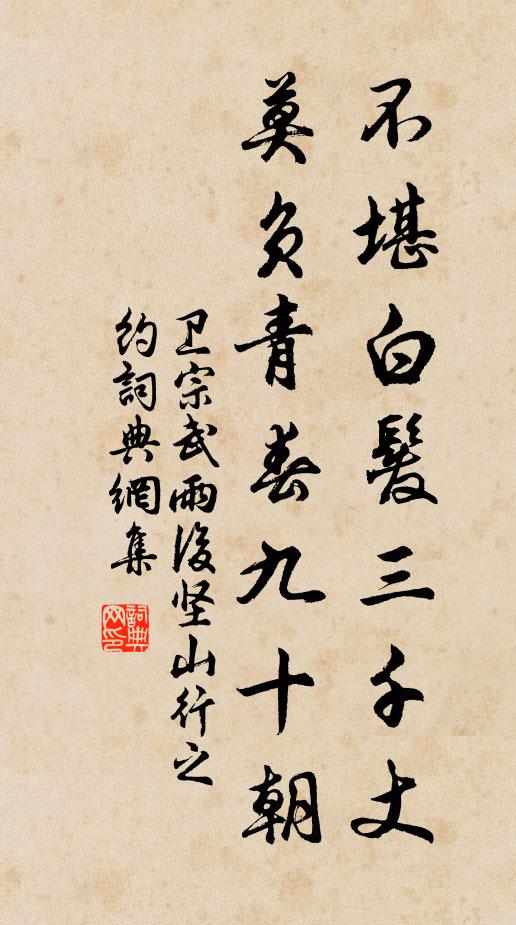 不堪白髮三千丈
莫負青春九十朝
卫宗武雨後坚山行之
約詞典網集
詞典网印